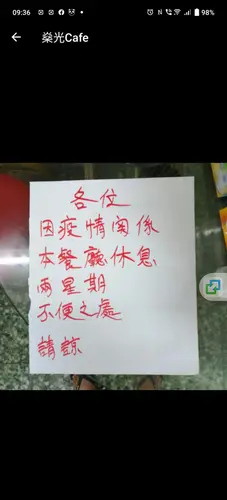 09:36
98%
燊光Cafe
各位
因疫情関係
本餐廳休息
兩星期
不便之處
請諒